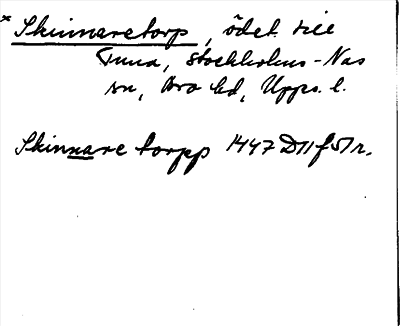 * Skinnaretorp, ödet. till
Tuna, Stockholms-Näs
sn, Bro hd, Upps. l.
Skinnare torpp 1447 D11 f 51 r.